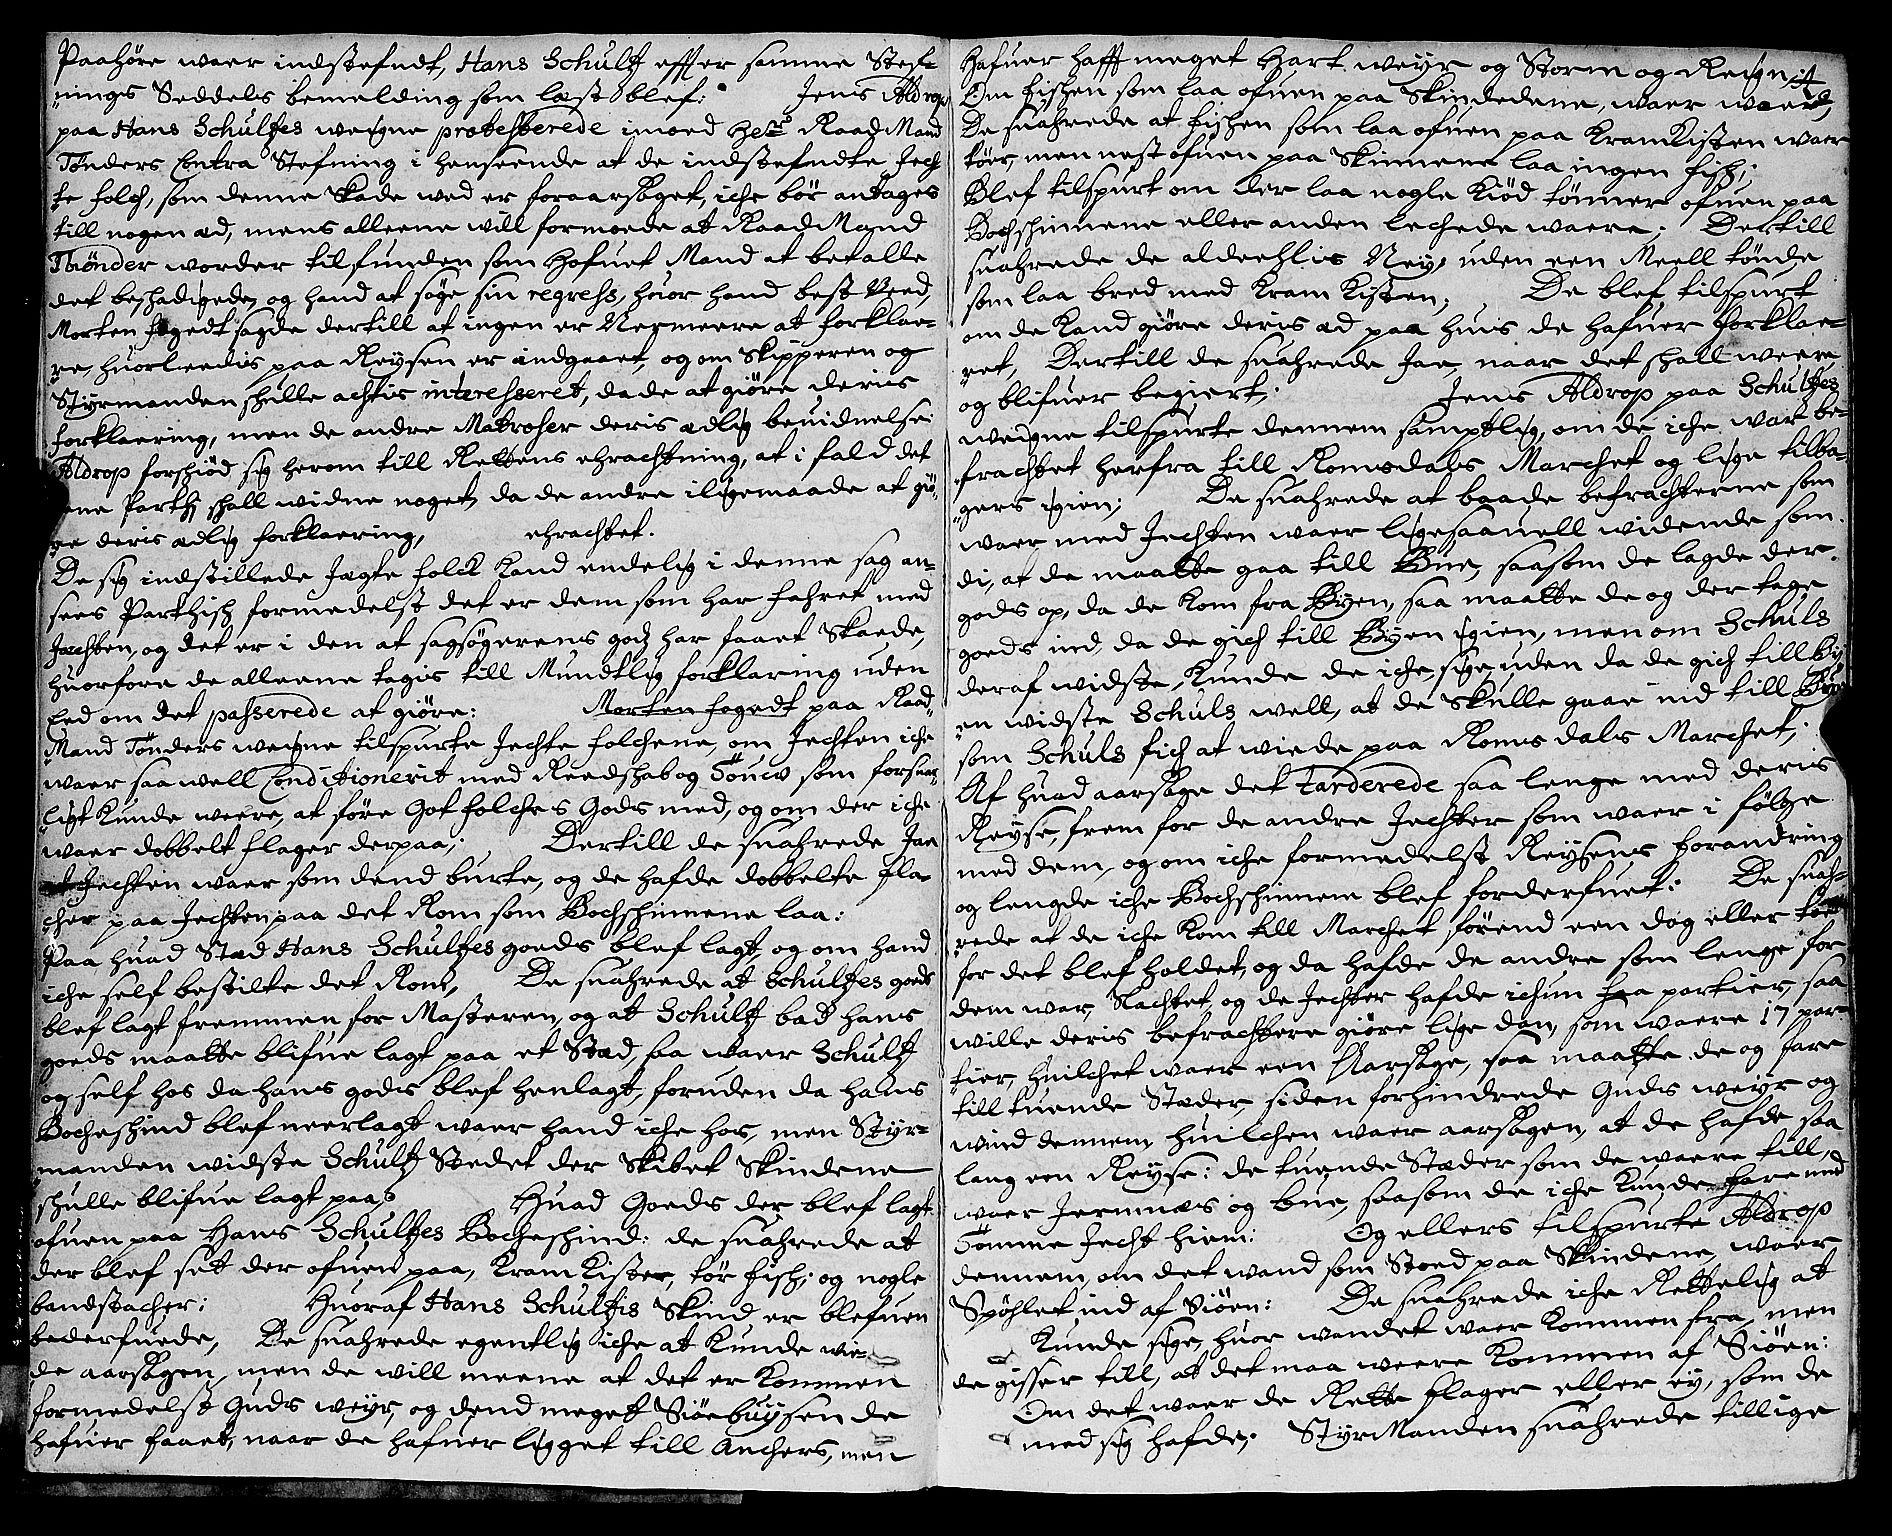 Paahöre waer indstefndt, Hans Schultz effter samme Stef-
nings Seddels bemelding som læst blef: Jens Aldrop
paa Hans Schultzes weigne protesterede imoed Her Raad Mand
Tönders Contra Stefning i henseende at de indstefndte Jech-
te folch, som denne Skade wed er foraarsaget, iche bör antages
till nogen æd, mens alleene will formoede at Raad Mand
Thönder worder tilfunden som Hofuet Mand at betalle
det beschadigede, og hand at söge sin regress, huor hand best Veed,
Morten fogedt sagde dertill at ingen er Nermeere at forklae-
re, huorleedis paa Reysen er indgaaet, og om Skipperen og
Styrmanden skulle achtis interesseret, da de at giöre deris
forklaering, men de andre Matroser deris ædlig beuidnelse
Aldrop forschiöd sig herom till Rettens ehrachtning, at i fald det
ene Parthj shall widne noget, da de andre iligemaade at giö-
re deris ædlig forklaering, ehrachtet.
De sig indstillede Jægte folck kand endelig i denne sag an-
sees Parthisch formedelst det er dem som har fahret med
Jachten, og det er i den at sagsögerens godz har faaet Skaede,
huorfore de alleene tagis till Mundtlig forklaring uden
Eed om det passerede at giöre: Morten fogedt paa Raad
Mand Tönders weigne tilspurte Jechte folchene, om Jechten iche
waer saa well Conditionerit med Reedskab og Töuew som forsuar-
ligt kunde weere, at före Got folches Gods med, og om der iche
waer dobbelt flager derpaa; Dertill de suahrede Jae
at Jechten waer som dend burte, og de hafde dobbelte fla-
cher paa Jechten paa det Rom som Bochschinnene laa:
Paa huad Stæd Hans Schultzes goeds blef lagt, og om hand
iche self bestilte det Rom, De suahrede at Schultzes goeds
blef lagt fremmen for Masteren, og at Schultz bad hans
goeds maatte blifue lagt paa et Stæd, saa waer Schultz
og self hos da hans gods blef henlagt, foruden da hans
Bocheskind blef neerlagt waer hand iche hos, men Styr-
manden widste Schultz Stedet der Skibet Skindene
shulle blifue lagt paa; Huad Goeds der blef lagt
ofuen paa Hans Schultzes Bocheskind: de suahrede at
der blef sat der ofuen paa, kram kister, tör fisch; og nogle
bandstacher: Huoraf Hans Schultzis Skind er blefuen
bederfuede, De suahrede egentlig iche at kunde wi-
de aarsagen, men de will meene at det er kommen
formedelst Guds weyr, og dend meget Siöebuysen de
hafuer faaet, naar de hafuer ligget till Anchers, men
Hafuer hafft meget Hart weyr og Storm og Regn;
Om fischen som laa ofuen paa Skindene, waer waerd,
De suahrede at fischen som laa ofuen paa Kramkisten waer
tör, men nest ofuen paa Skinnene laa ingen fisch;
Blef tilspurt om der laa nogle kiöd tönner ofuen paa
Bochschinnene eller anden lechede waere. Dertill
suahrede de aldeehlis Ney, uden een Meell tönde
som laa bred med kram kisten; De blef tilspurt
om de kand giöre deris æd paa huis de hafuer forklae-
ret, Dertill de suahrede Jae, naar det shall weere
og blifuer begiert; Jens Aldrop paa Schultzes
weigne tilspurte dennem samptlig, om de iche war be-
frachtet herfra till Romsdals Marchet og lige tilba-
gers igien; De suahrede at baade befrachterne som
waer med Jechten waer ligesaauell widende som
di, at de maatte gaa till Bue, saasom de lagde der
gods op, da de kom fra Byen, saa maatte de og der tage
goeds ind, da de gich till Byen igien, men om Schuls
deraf widste, kunde de iche sige, uden da de gich till By
en widste Schuls well, at de Skulle gaae ind till Bue
som Schuls fich at wiede paa Romsdals Marchet;
Af huad aarsage det tarderede saa lenge med deris
Reyse, frem for de andre Jechter som waer i fölge
med dem, og om iche formedelst Reysens forandring
og lengde iche Bochschinnene blef forderfuet: De suah-
rede at de iche kom till Marchet förend een dag eller
for det blef holdet, og da hafde de andre som lenge for
dem war, Slachtet, og de Jechter hafde ichun partier, saa
wille deris befrachtere giöre lige dan, som waere 17 par
tier, huilchet waer een Aarsage, saa maatte de og fare
till tuende Stæder, siden forhindrede Guds weyr og
wind dennem, huilchen waer aarsagen, at de hafde saa
lang een Reyse: de tuende Stæder som de waere till,
waer Jermnes og bue, saasom de iche kunde fare med
Tömme Jecht hiem: Og ellers tilspurte Aldrop
dennem, om det wand som Stoed paa Skindene, waer
Spöhlet ind af Siöen: De suahrede iche Rettelig at
kunde sige, huor wandet waer kommen fra, men
de gisser till, at det maa weere kommen af Siöen:
Om det waer de Rette flager eller ey, som de
med sig hafde; StyrManden suahrede tillige